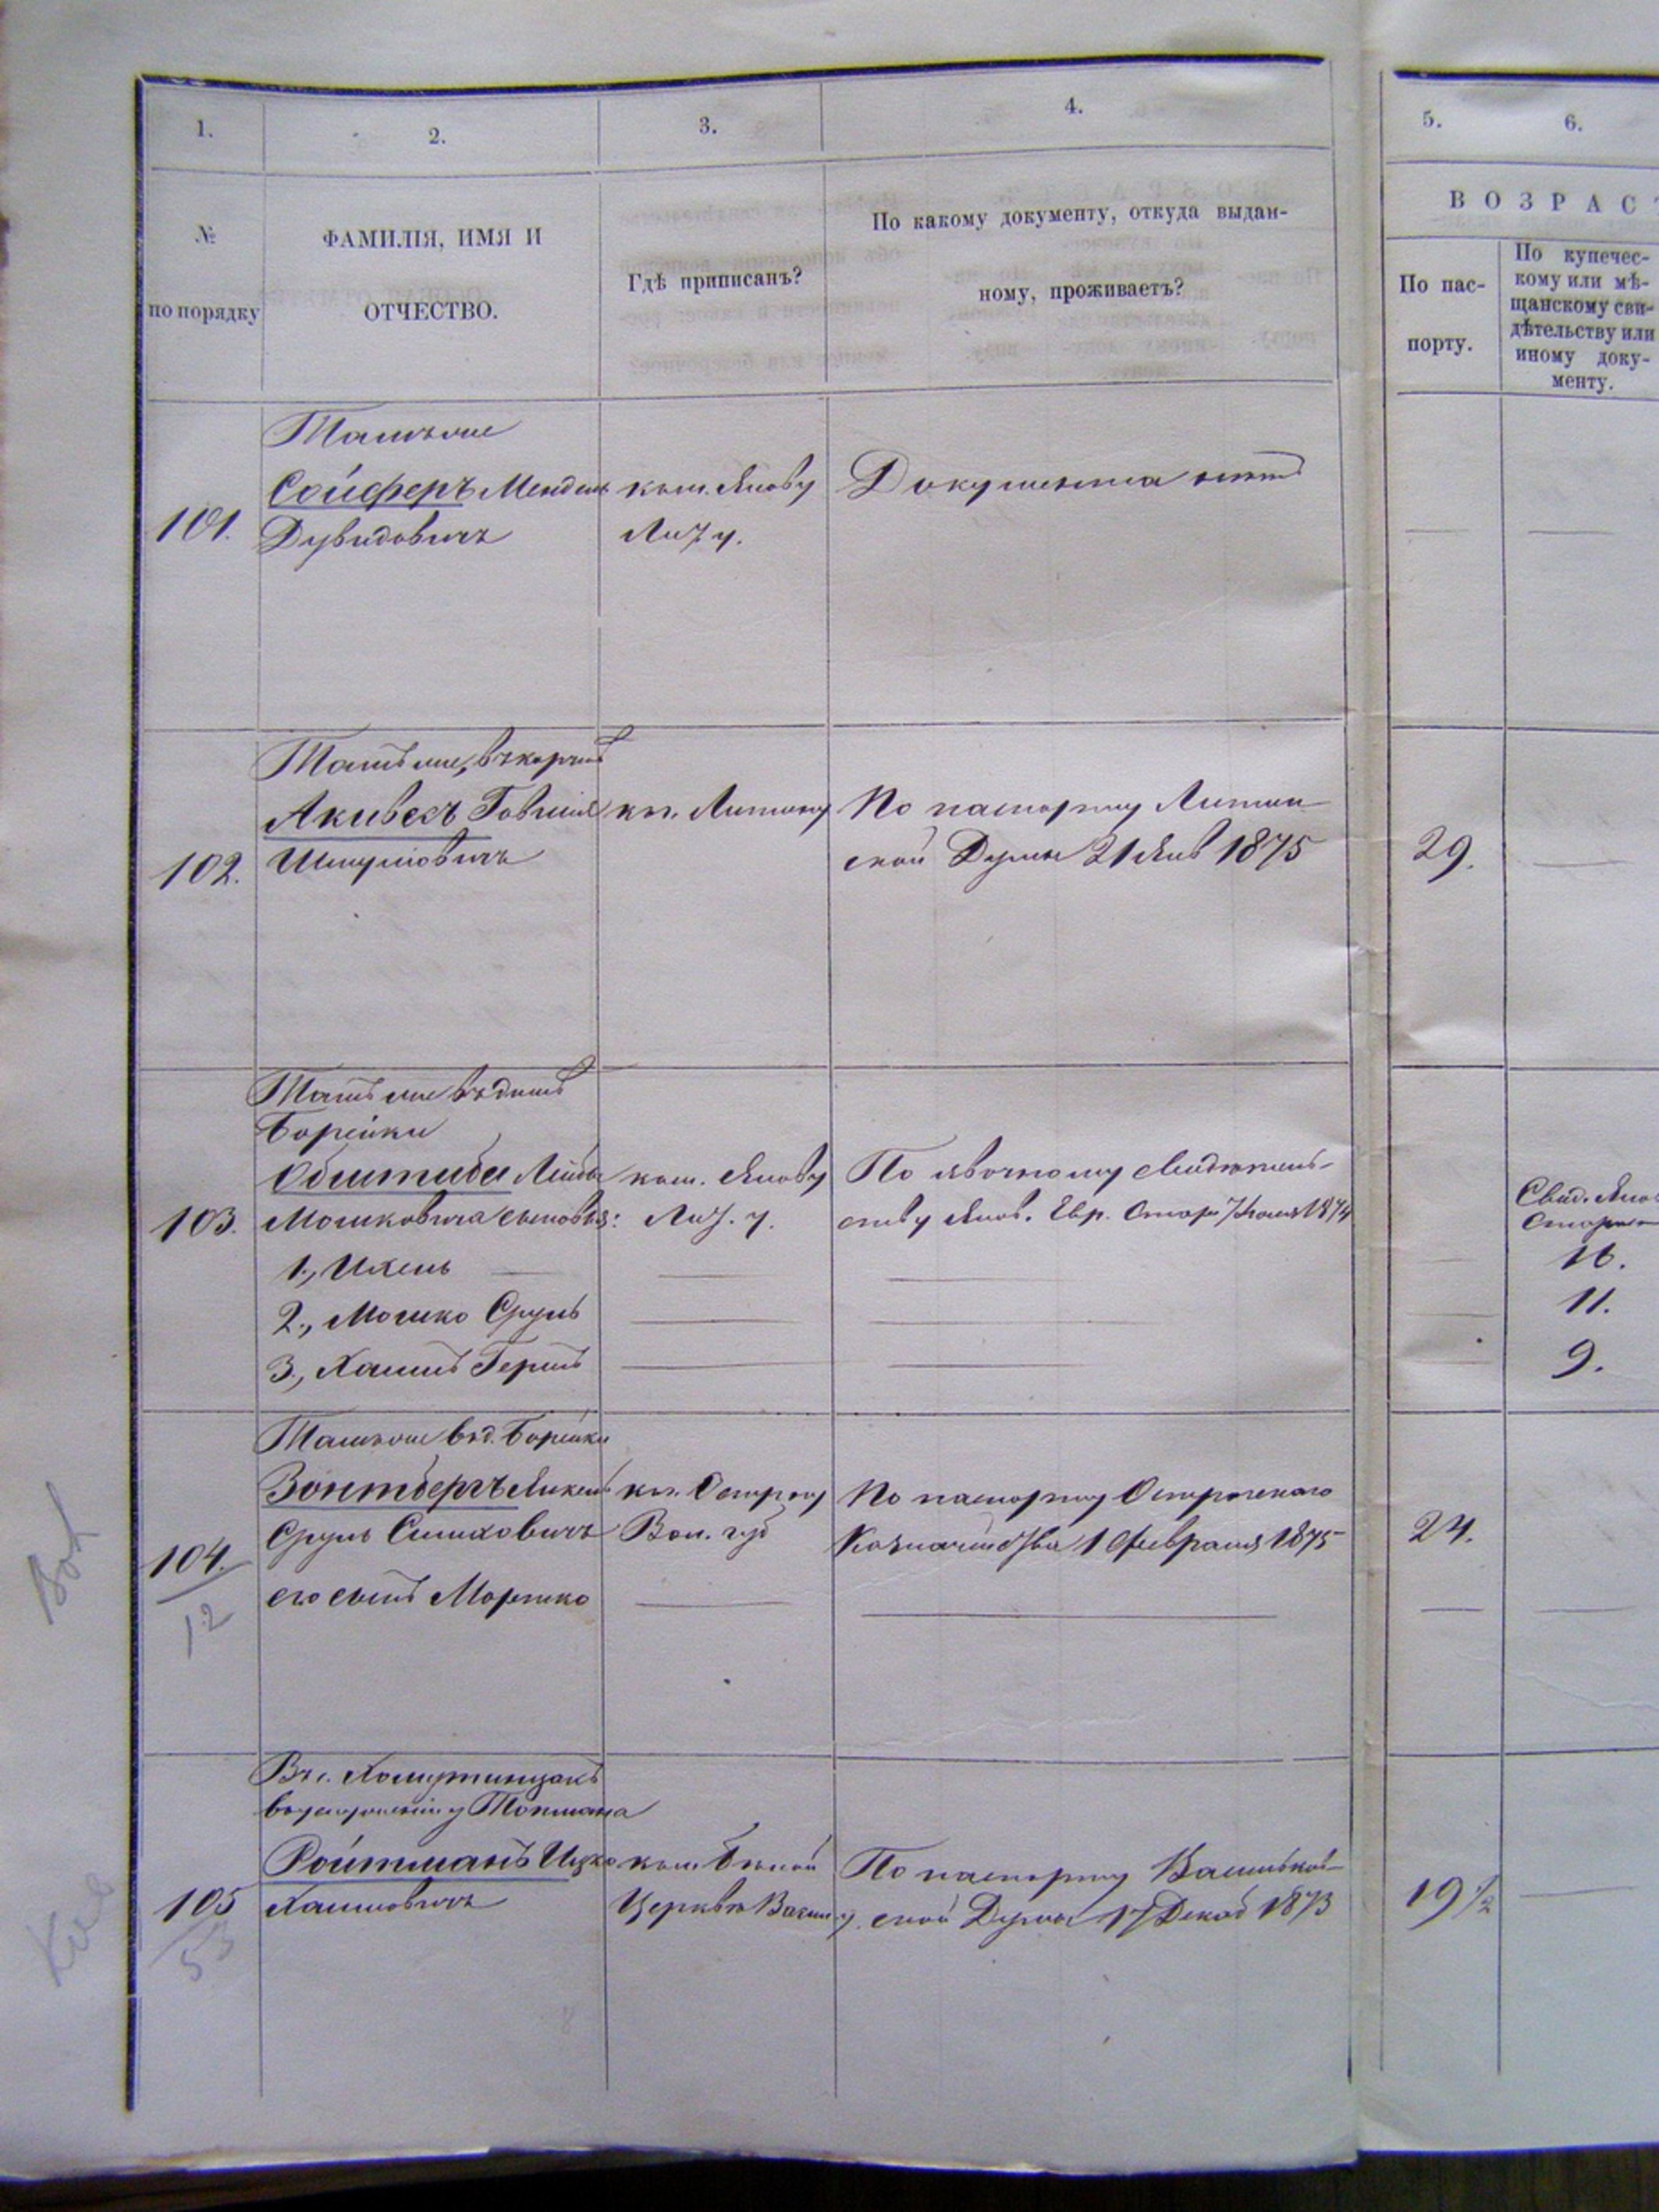 1.
2.
3.
4.
5.
6.
№
по порядку
ФАМИЛІЯ, ИМЯ И
ОТЧЕСТВО.
Гдѣ приписанъ?
По какому документу, откуда выдан-
ному, проживаетъ?
ВОЗРАСТ
По пас-
порту.
По купечес-
кому или мѣ-
щанскому сви-
дѣтельству или
иному доку-
менту.
101.
Тамъ же
Сойферъ Мендель
Дувидовичъ
къ м. Янову
Лит. у.
Документа нѣтъ
102.
Тамъ же, въ корчмѣ
Акивесъ Говшія
Шмулевичъ
къ г. Литину
По паспорту Литин-
ской Думы 21 Янв 1875
29.
103.
Тамъ же въ домѣ
Борейки
Обштиба Лейбы
Мошковича сыновья:
1., Ихель
2., Мошко Сруль
3., Хаимъ Гершъ
къ м. Янову
Лит. у.
По явочному свидѣтель-
ству Янов. Евр. Старо 7 1874
Свид. Янов
Старо
16.
11.
9.
104.
12
Тамъ же въ д. Борейки
Зонтбергъ Янкель
Сруль Симховичъ
его сынъ Мошко
къ г. Острогу
Вол. губ
По паспорту Острожскаго
Казначейства 1 февраля 1875
24.
105
53
Въ с. Хомутинцахъ
въ услуженіи у Токмана
Ройтманъ Ицко
Хаимовичъ
къ м. Бѣлой
Церкви Васил. у.
По паспорту Васильков-
ской Думы 17 Декаб 1873
19 1/2
Вол
Кіев